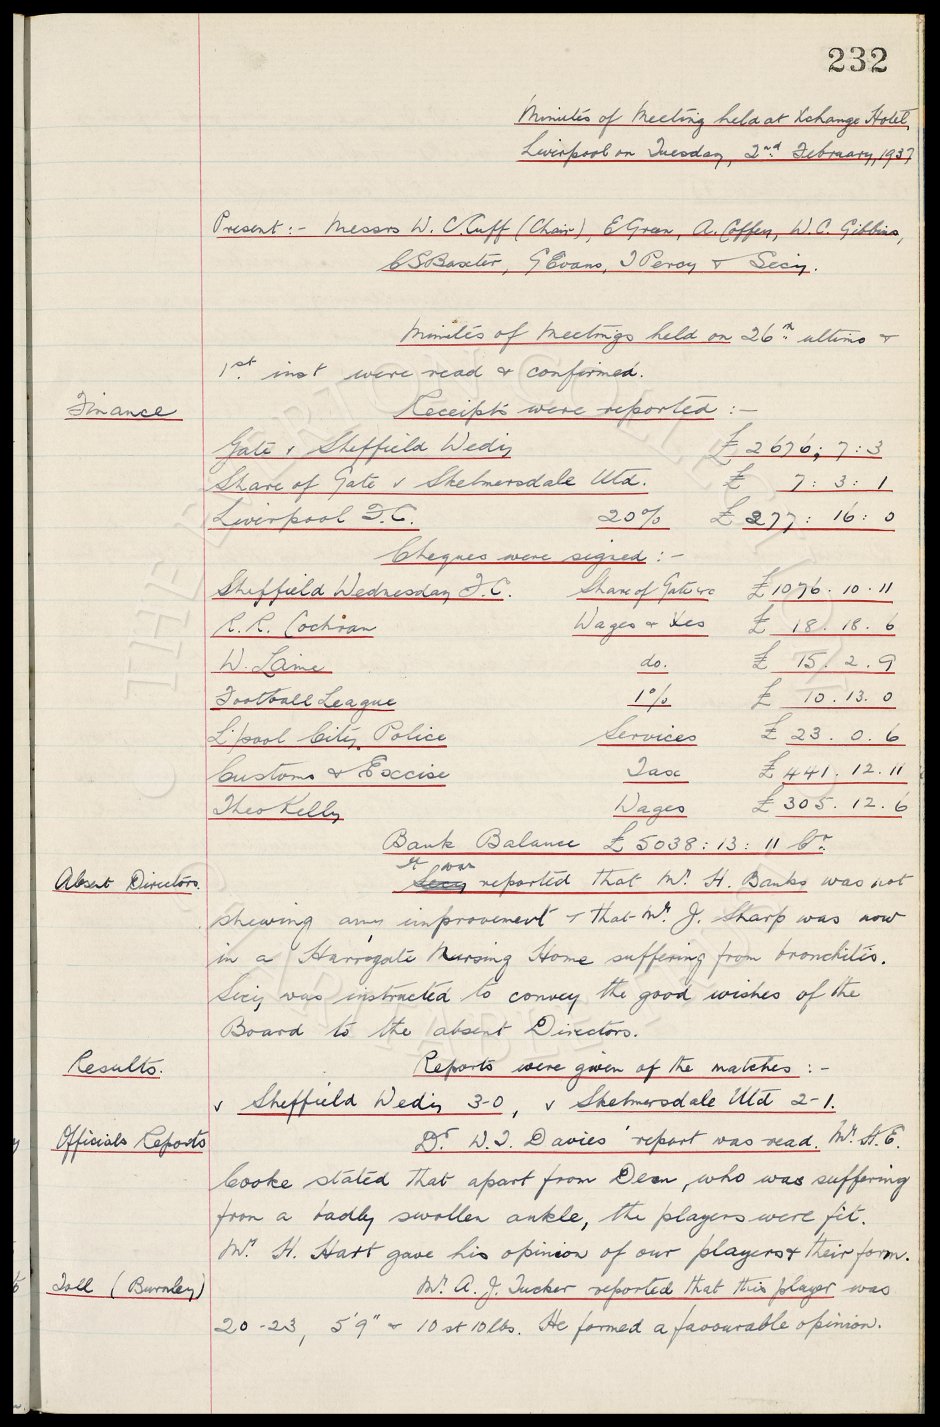 232
Minutes of Meeting held at Xchange Hotel,
Liverpool on Tuesday, 2nd February, 1937
Present:- Messrs W. C. Cuff (Chair), E Green, A. Coffey, W. C. Gibbins,
C S Baxter, G Evans, J Percy & Secy.
Minutes of Meetings held on 26th ultimo &
1st inst were read & confirmed.
Finance Receipts were reported :-
Gate v Sheffield Wedy £2676 : 7 : 3
Share of Gate v Skelmersdale Utd. £ 7 : 3 : 1
Liverpool F.C. 20% £ 277 : 16 : 0
Cheques were signed :-
Sheffield Wednesday F.C. Share of Gate &c £1076 . 10 . 11
R. R. Cochran Wages & Xes £ 18 . 18 . 6
W. Laine do. £ 15 . 2 . 9
Football League 1% £ 10 . 13 . 0
L'pool City Police Services £ 23 . 0 . 6
Customs & Excise Tax £441 . 12 . 11
Theo Kelly Wages £305 . 12 . 6
Bank Balance £5038 : 13 : 11 Cr.
Absent Directors It was reported that Mr. H. Banks was not
shewing any improvement & that Mr. J. Sharp was now
in a Harrogate Nursing Home suffering from bronchitis.
Secy was instructed to convey the good wishes of the
Board to the absent Directors.
Results. Reports were given of the matches :-
v Sheffield Wedy 3-0, v Skelmersdale Utd 2-1.
Officials Reports Dr. W. J. Davies' report was read. Mr. H. E.
Cooke stated that apart from Dean, who was suffering
from a badly swollen ankle, the players were fit.
Mr. H. Hart gave his opinion of our players & their form.
Toll (Burnley) Mr. A. J. Tucker reported that this player was
20-23, 5'9" & 10 st 10 lbs. He formed a favourable opinion.